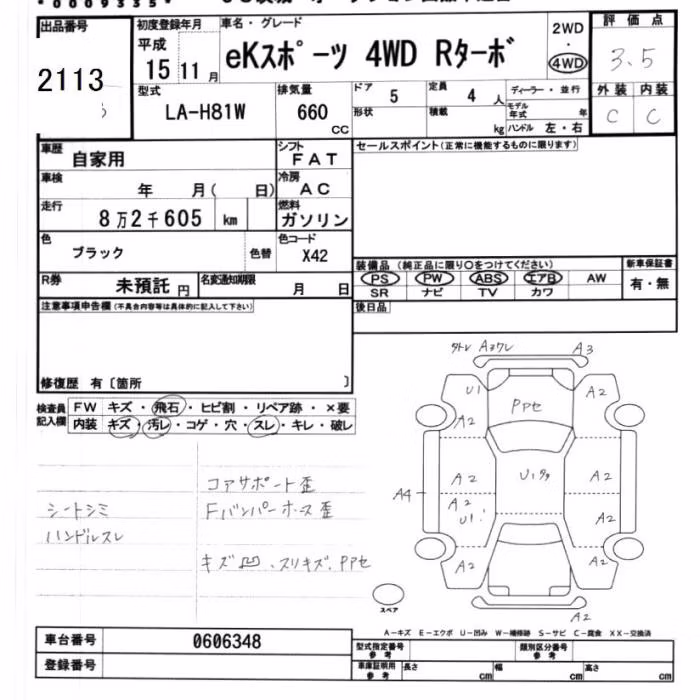 出品番号
2113
初度登録年月
平成
15 11月
車名・グレード
eKスポーツ 4WD Rターボ
2WD
・
4WD
評価点
3.5
外装 内装
C C
型式
LA-H81W
排気量
660
CC
ドア
5
定員
4 人
形状
積載
kg
ディーラー・並行
モデル年式 年
ハンドル 左・右
車歴
自家用
シフト
FAT
車検
年 月( 日)
冷房
AC
走行
8万2千605 km
燃料
ガソリン
色
ブラック
色替
色コード
X42
R券
未預託 円
名変通知期限
月 日
セールスポイント(正常に機能するものに限ります)
装備品(純正品に限り○をつけてください)
新車保証書
PS PW ABS エアB AW
有・無
SR ナビ TV カワ
後日品
注意事項申告欄(不具合内容等は具体的に記入して下さい)
修復歴 有〔箇所 〕
検査員記入欄
FW キズ・飛石・ヒビ割・リペア跡・×要
内装 キズ・汚レ・コゲ・穴・スレ・キレ・破レ
シートシミ
ハンドルスレ
コアサポート歪
Fバンパーホース歪
キズ凹、スリキズ、PPセ
A3
U1
A2
PPセ
A2
A2
U1
A2
A2
U1
A4
A2
A2
A2
A2
スペア
A2
A-キズ E-エクボ U-凹み W-補修跡 S-サビ C-腐食 XX-交換済
車台番号
0606348
登録番号
型式指定番号
参考
類別区分番号
参考
車庫証明用
参考
長さ cm
幅 cm
高さ cm